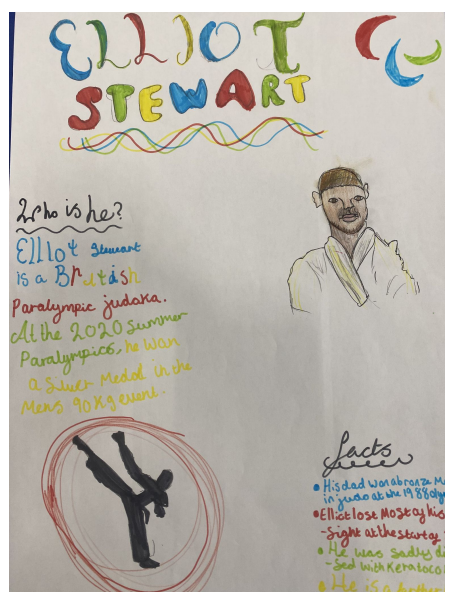 ELLIOT
STEWART
Who is he?
Elliot Stewart
is a British
Paralympic judoka.
At the 2020 Summer
Paralympics, he won
a Silver Medal in the
Mens 90Kg event.
facts
• His dad won a bronze Me
in judo at the 1988 Oly
• Elliot lost Most of his
-Sight at the start of
• He was sadly di
-Sed with Keratoco
• He is a father